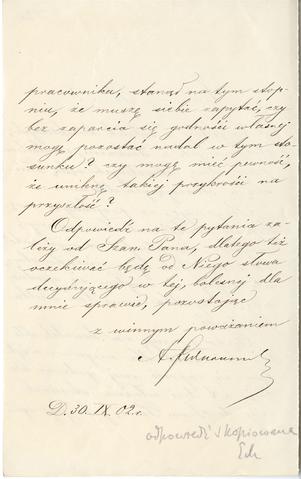 pracownika, stanął na tym stop-
niu, że muszę siebie zapytać, czy
bez zaparcia się godności własnej
mogę pozostać nadal w tym sto-
sunku? czy mogę mieć pewność,
że uniknę takiej przykrości na
przyszłość?
Odpowiedź na te pytania za-
leży od Szan. Pana, dlatego też
oczekiwać będę od Niego słowa
decydującego w tej, bolesnej dla
mnie sprawie, pozostając
z winnym poważaniem
A.
D. 30. IX. 02. r.
odpowiedź skopiowana